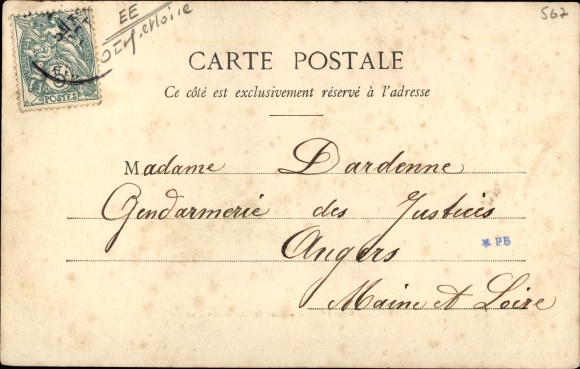 EE
567
5
POSTES
CARTE POSTALE
Ce côté est exclusivement réservé à l'adresse
Madame Dardenne
Gendarmerie des Justices
Angers
* PB
Maine & Loire